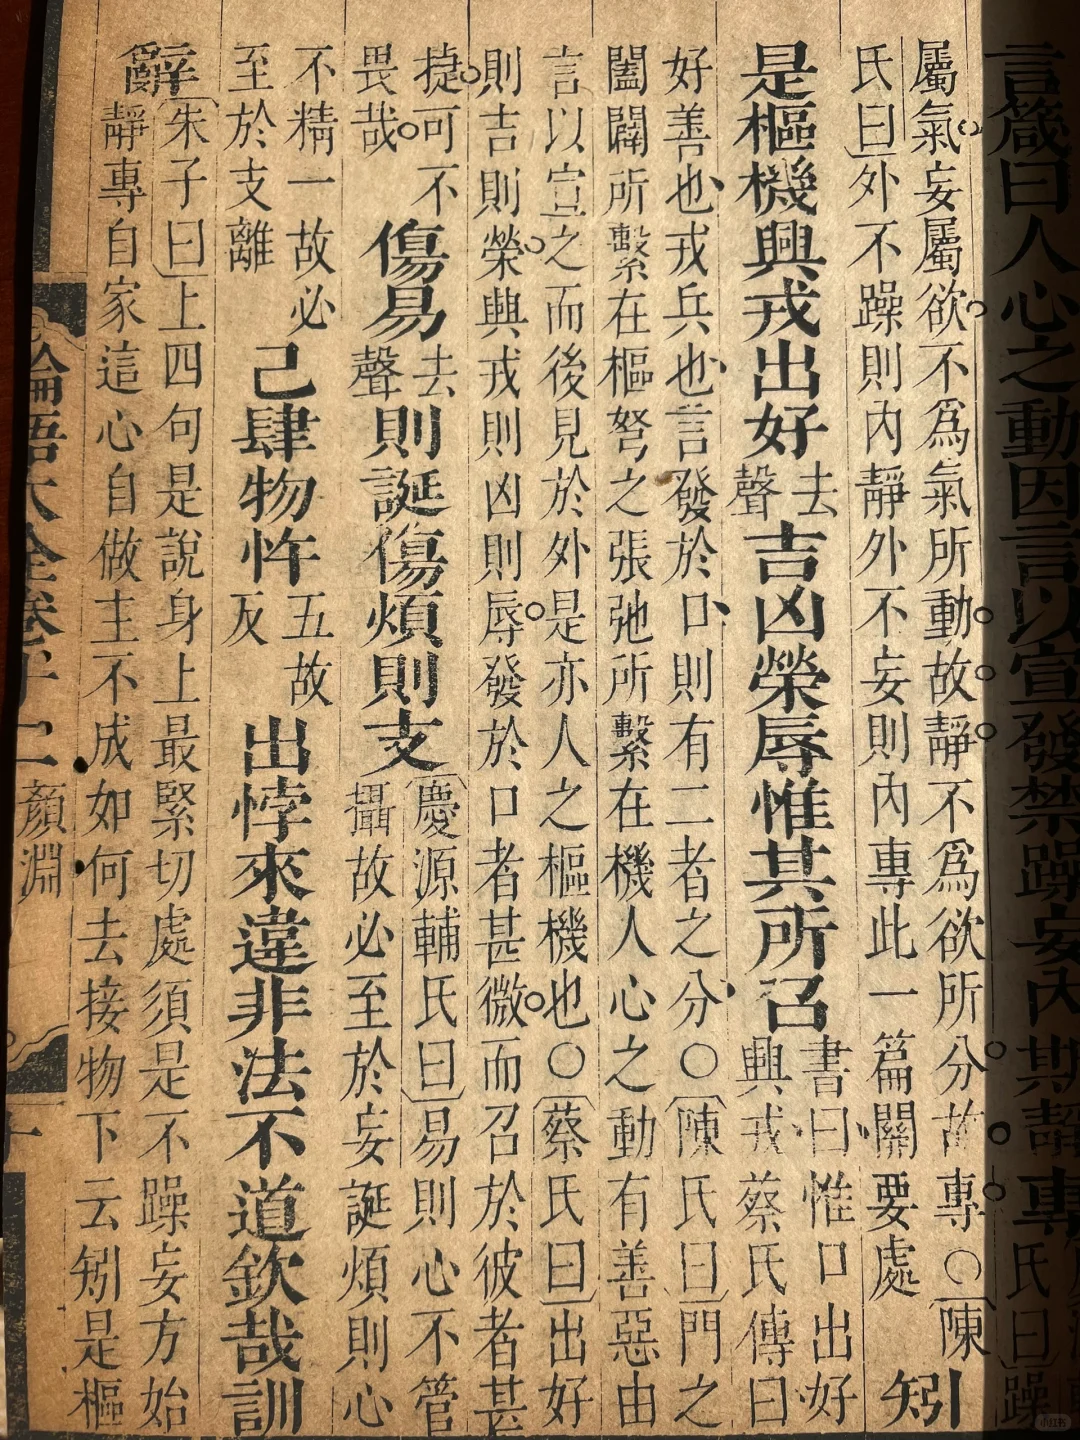 言箴曰人心之動因言以宣發禁躁妄內斯靜專
氏曰躁
屬氣妄屬欲不為氣所動故靜不為欲所分故專○陳
氏曰外不躁則內靜外不妄則內專此一篇關要處
矧
是樞機興戎出好
去
聲
吉凶榮辱惟其所召
書曰惟口出好
興戎蔡氏傳曰
好善也戎兵也言發於口則有二者之分○陳氏曰門之
闔闢所繫在樞弩之張弛所繫在機人心之動有善惡由
言以宣之而後見於外是亦人之樞機也○蔡氏曰出好
則吉則榮興戎則凶則辱發於口者甚微而召於彼者甚
捷可不
畏哉
傷易
去
聲
則誕傷煩則支
慶源輔氏曰易則心不管
攝故必至於妄誕煩則心
不精一故必
至於支離
己肆物忤
五故
反
出悖來違非法不道欽哉訓
辭
朱子曰上四句是說身上最緊切處須是不躁妄方始
靜專自家這心自做主不成如何去接物下云矧是樞
論語大全卷十二
顏淵